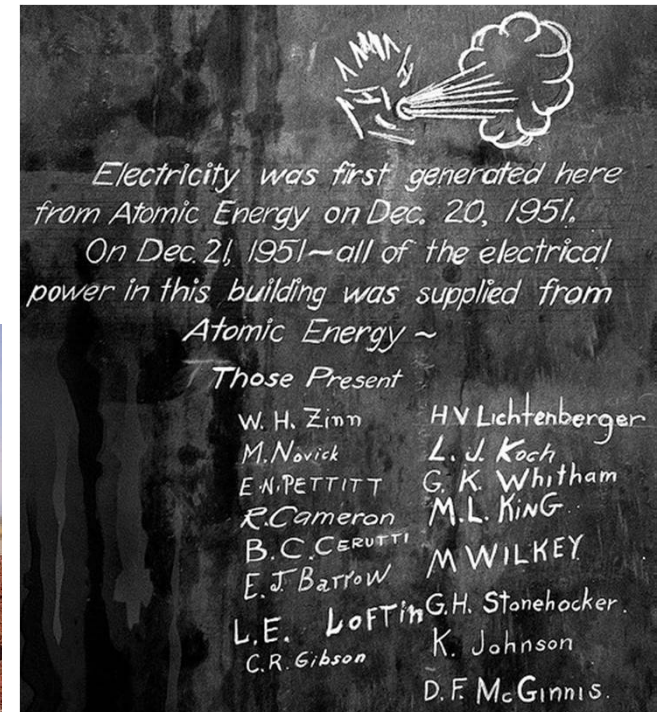 Electricity was first generated here
from Atomic Energy on Dec. 20, 1951.
On Dec. 21, 1951~all of the electrical
power in this building was supplied from
Atomic Energy ~
Those Present
W. H. Zinn
M. Novick
E.N. PETTITT
R. Cameron
B. C. CERUTTI
E. J. Barrow
L. E. LOFTin
C. R. Gibson
H V Lichtenberger
L. J. Koch
G. K. Whitham
M. L. KiNG
M WILKEY
G. H. Stonehocker.
K. Johnson
D. F. McGinnis.